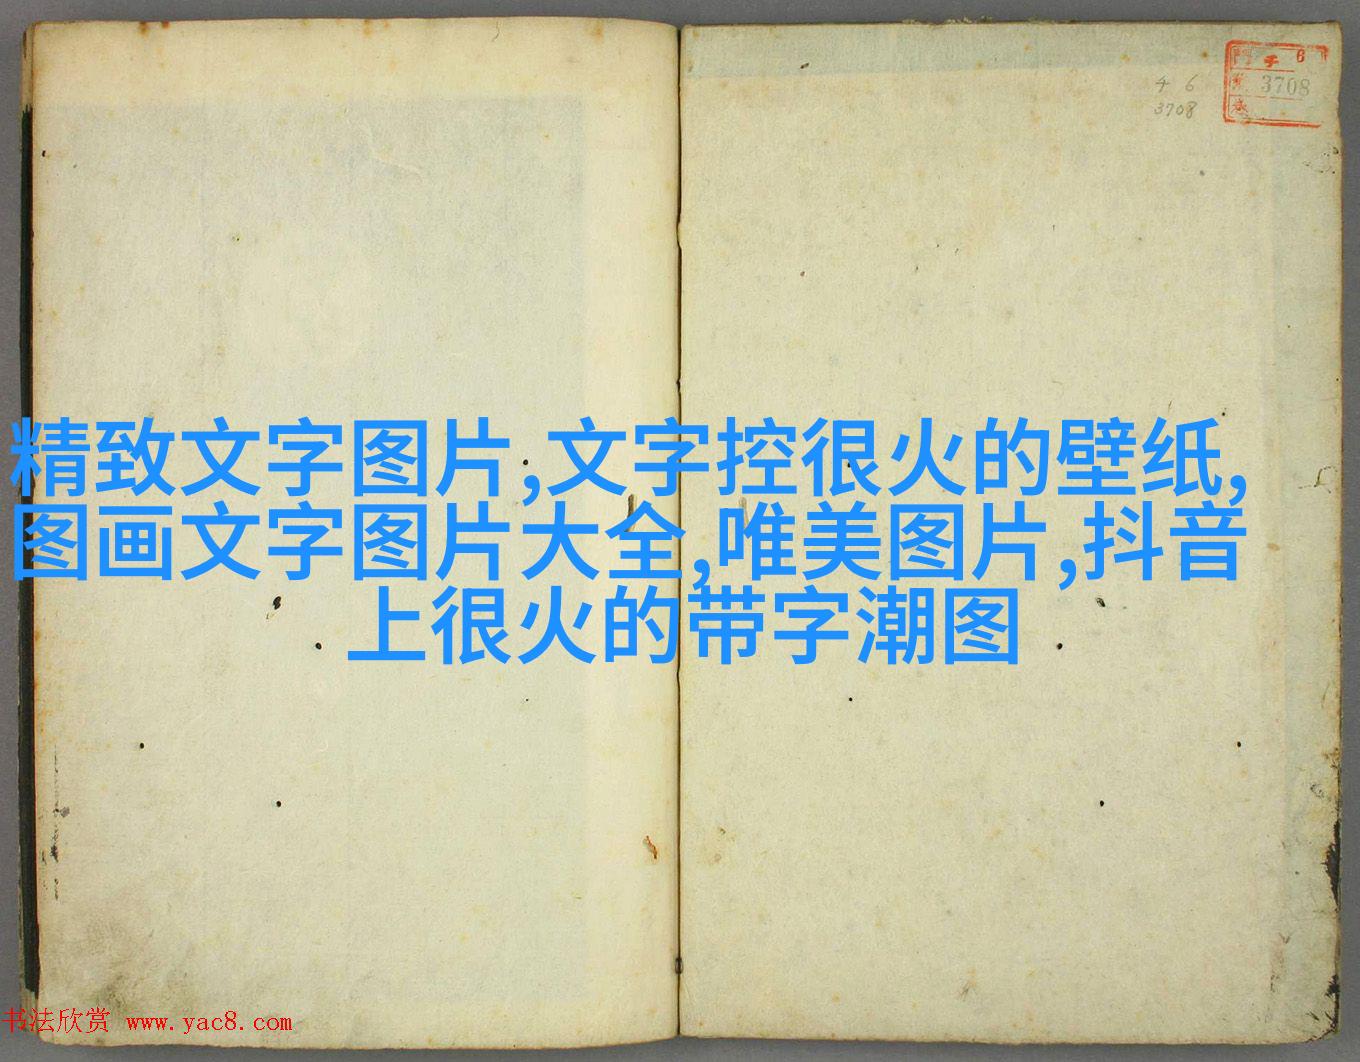 チ 6
3708
4 6
3708
精致文字图片,文字控很火的壁纸,
图画文字图片大全,唯美图片,抖音
上很火的带字潮图
书法欣赏 www.yac8.com